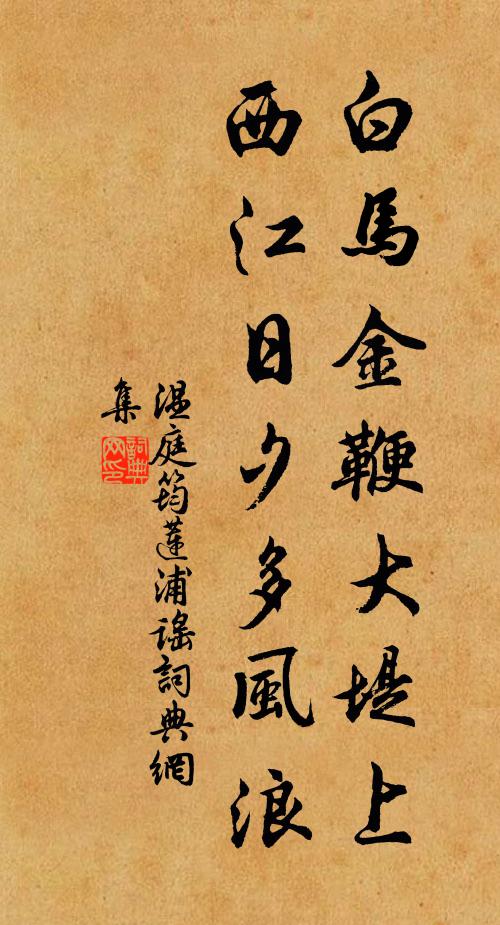 白馬金鞭大堤上
西江日夕多風浪
温庭筠蓮浦謠詞典網
集
詞典網印